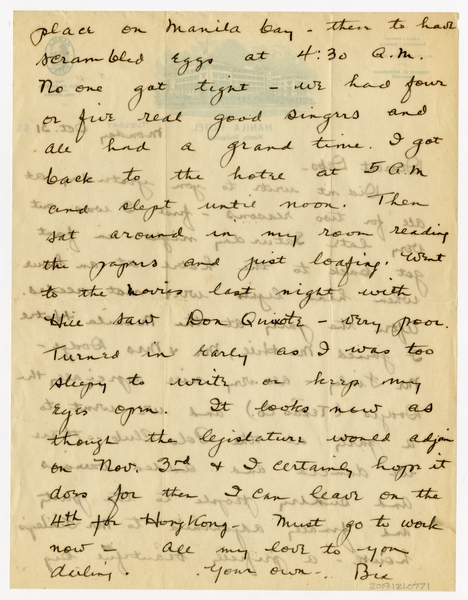 place on Manila bay - then to have
scrambled eggs at 4:30 A.M.
No one got tight - we had four
or five real good singers and
all had a grand time. I got
back to the hotel at 5 AM
and slept until noon. Then
sat around in my room reading
the papers and just loafing. Went
to the movies last night with
saw Don Quixote - very poor.
Turned in early as I was too
sleepy to write or keep my
eyes open. It looks now as
though the legislature would adjorn
on Nov. 3rd & I certainly hope it
does for then I can leave on the
4th for HongKong - Must go to work
now - all my love to you
darling. Your own - Bee
2017.1210771